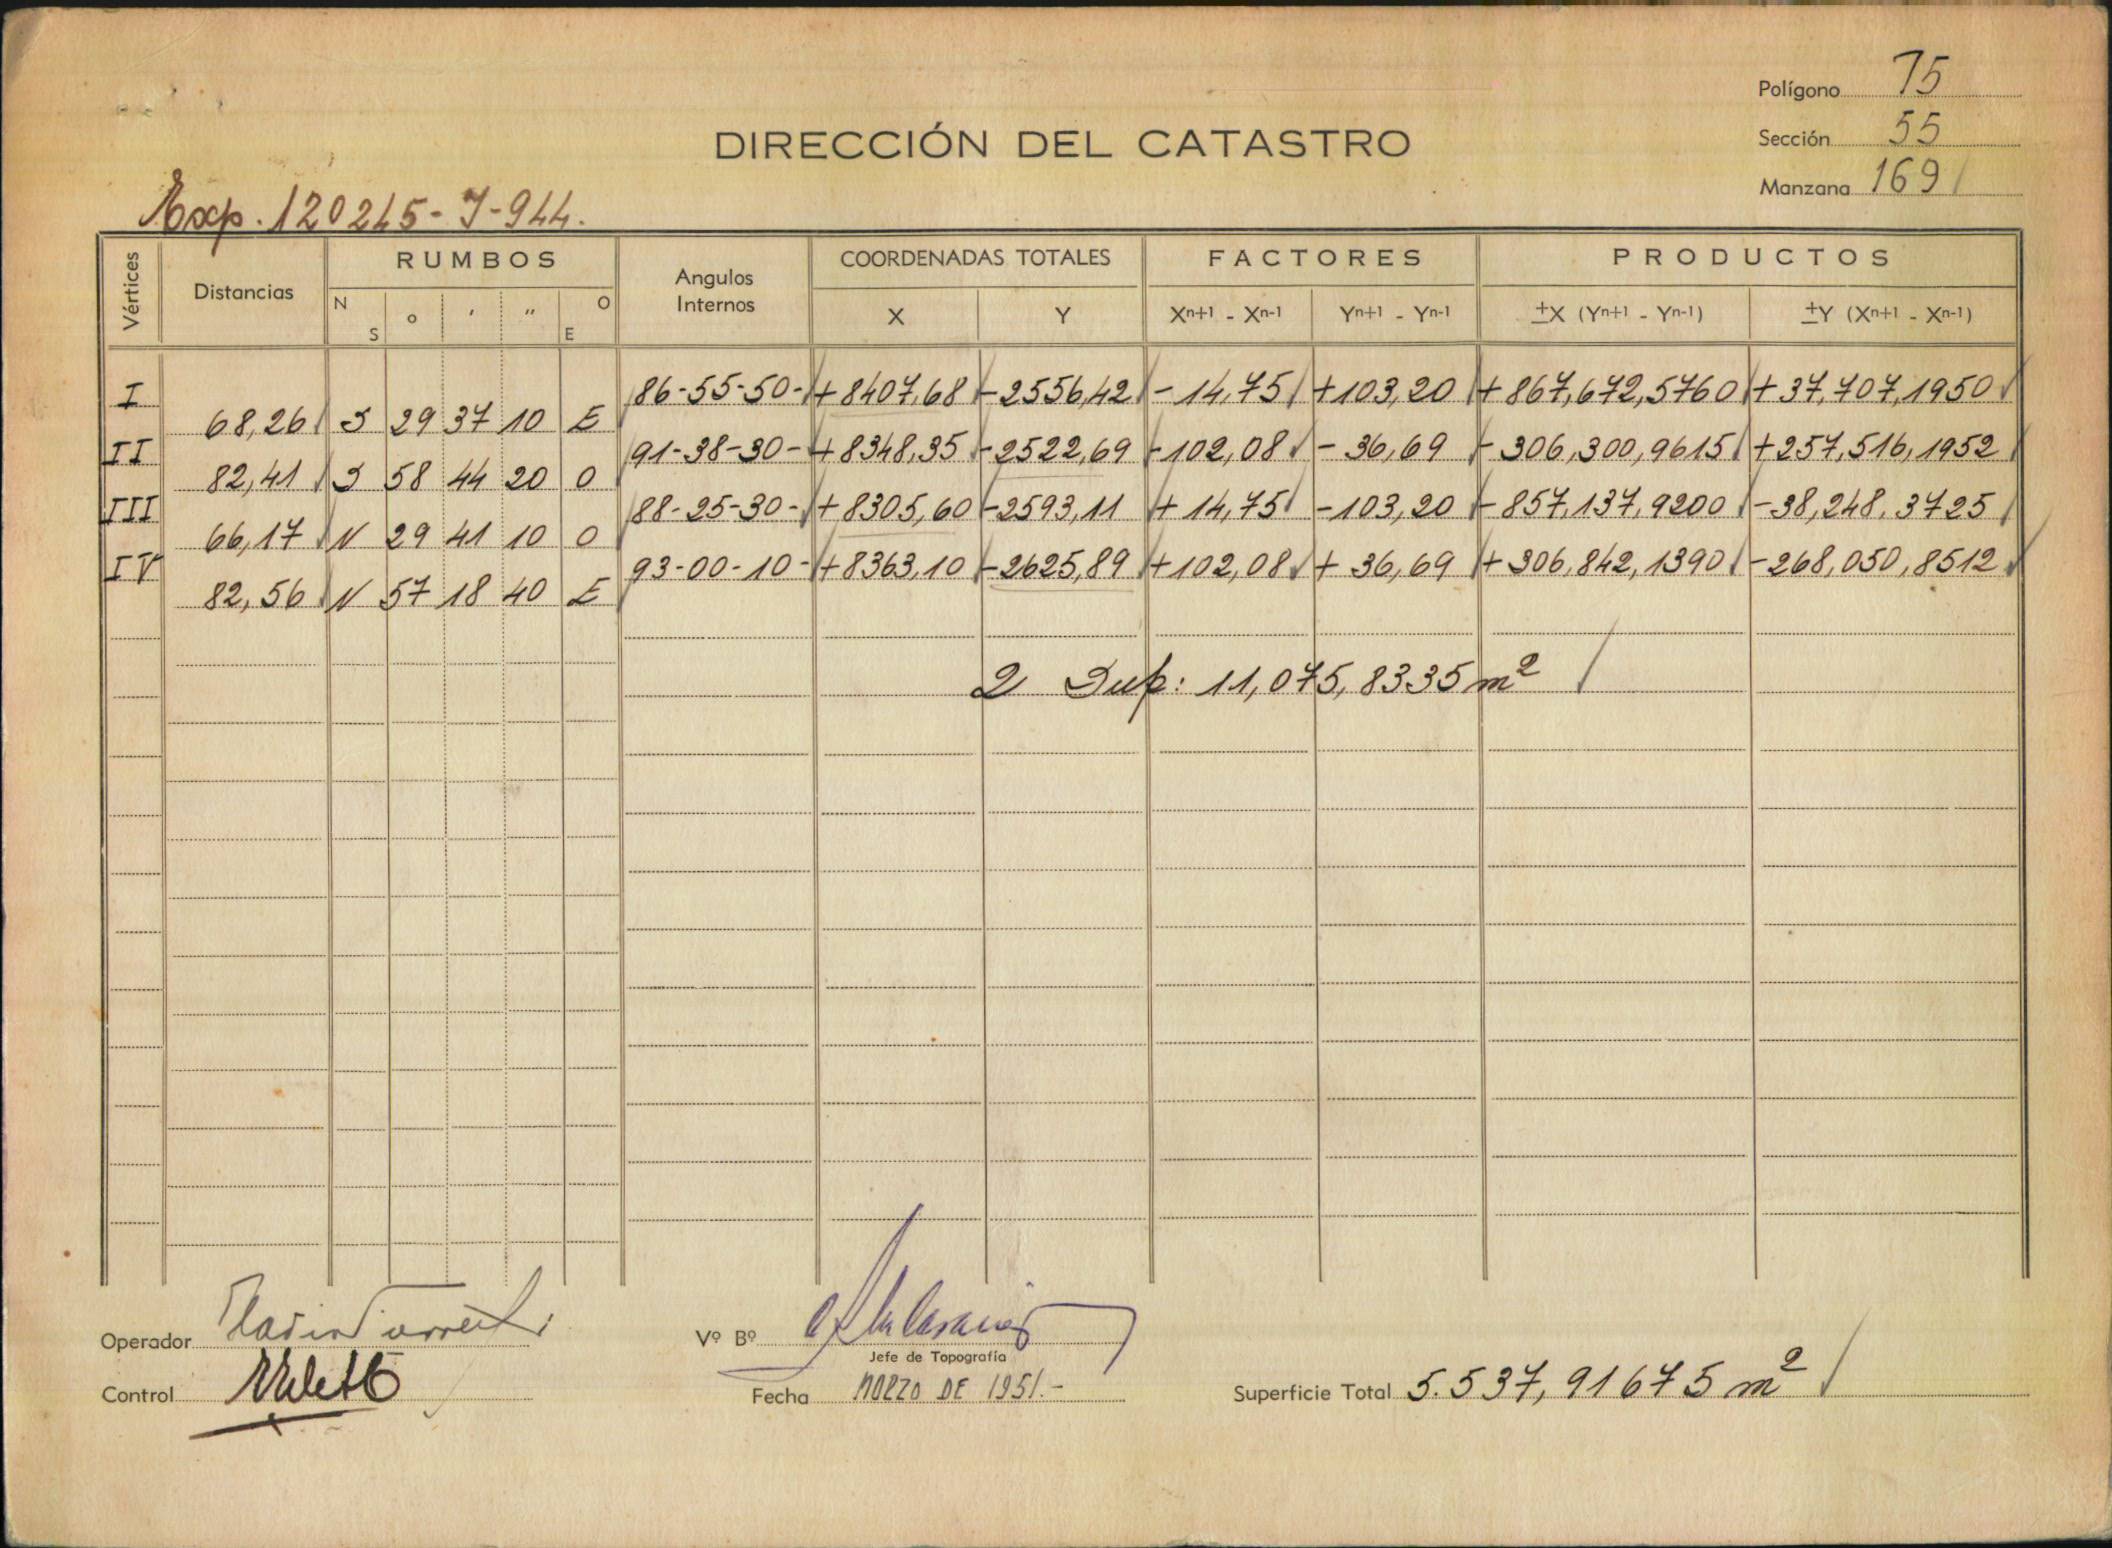 Polígono 75
DIRECCIÓN DEL CATASTRO
Sección 55
Manzana 169
Exp. 120245-J-944.
Vértices Distancias RUMBOS Angulos Internos COORDENADAS TOTALES FACTORES PRODUCTOS
N S ° ' " O E X Y Xn+1 - Xn-1 Yn+1 - Yn-1 ±X (Yn+1 - Yn-1) ±Y (Xn+1 - Xn-1)
I 86-55-50- +8407,68 -2556,42 -14,75 +103,20 +867,672,5760 +37,707,1950
68,26 S 29 37 10 E
II 91-38-30- +8348,35 -2522,69 -102,08 -36,69 -306,300,9615 +257,516,1952
82,41 S 58 44 20 O
III 88-25-30- +8305,60 -2593,11 +14,75 -103,20 -857,137,9200 -38,248,3725
66,17 N 29 41 10 O
IV 93-00-10- +8363,10 -2625,89 +102,08 +36,69 +306,842,1390 -268,050,8512
82,56 N 57 18 40 E
2 Sup: 11,075,8335 m²
Operador
Vº Bº
Jefe de Topografía
Control
Fecha MARZO DE 1951.-
Superficie Total 5.537,91675 m²